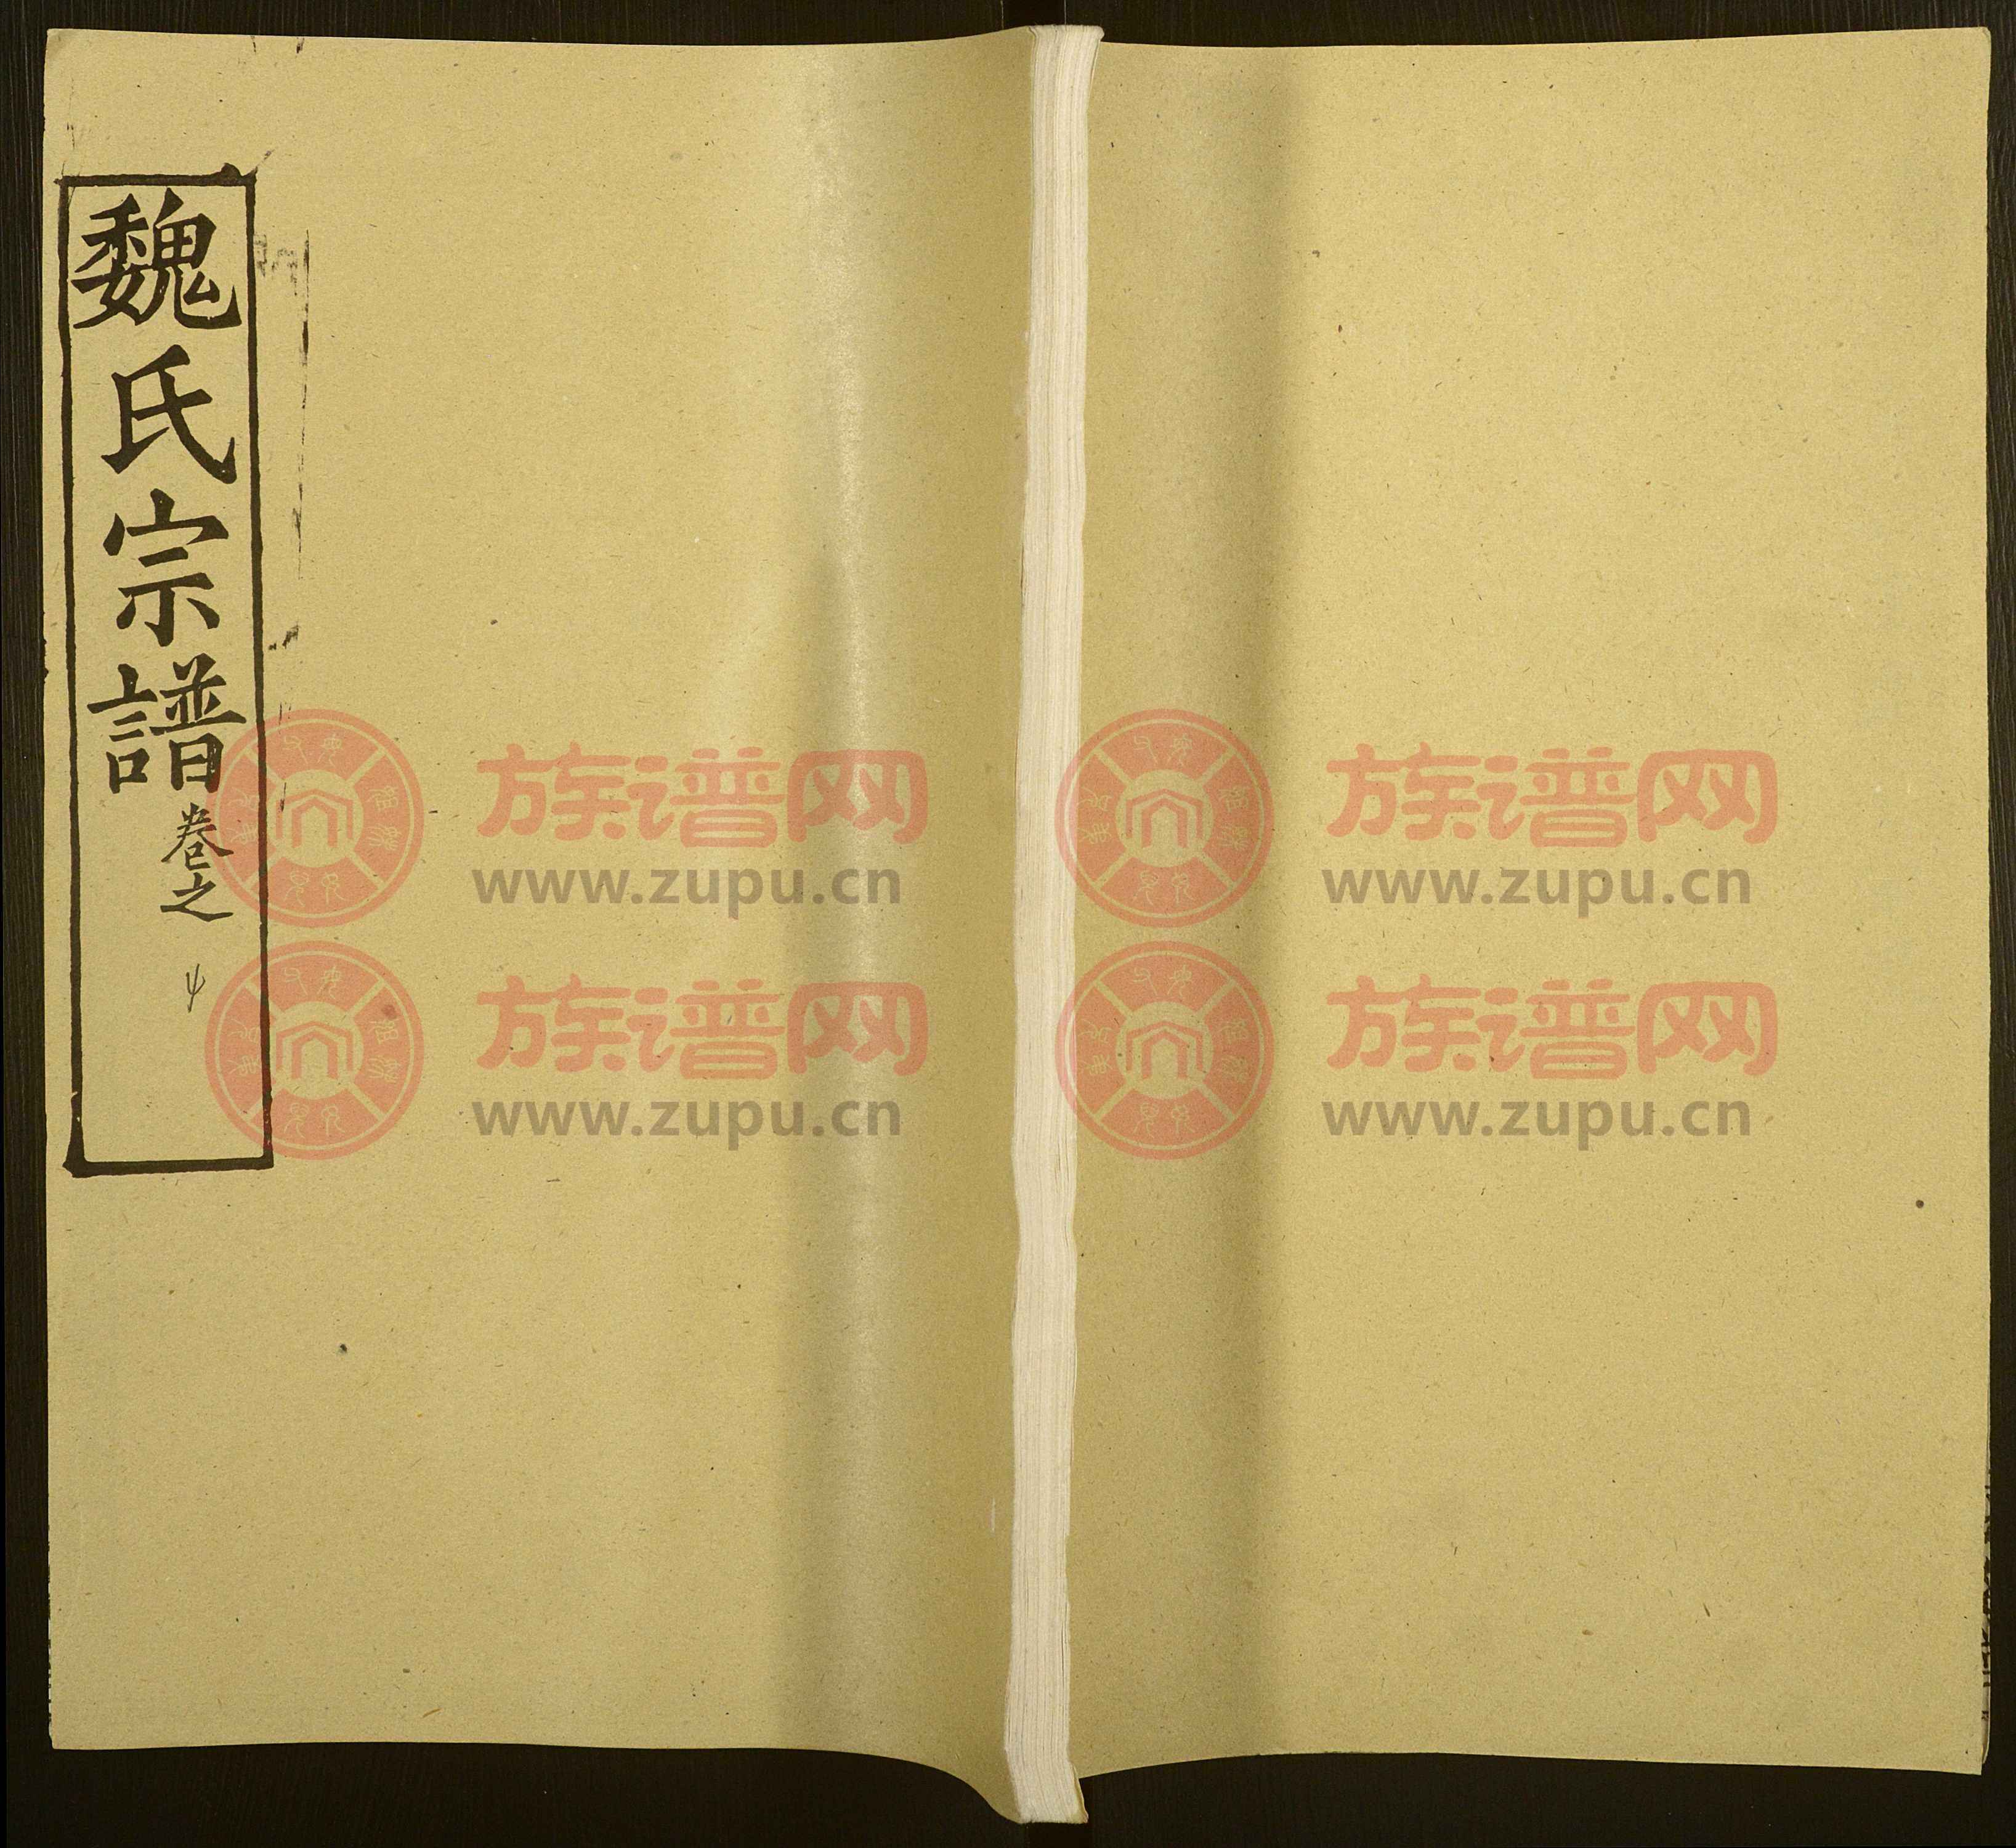 魏氏宗譜卷之
族谱网
www.zupu.cn
族谱网
www.zupu.cn
族谱网
www.zupu.cn
族谱网
www.zupu.cn